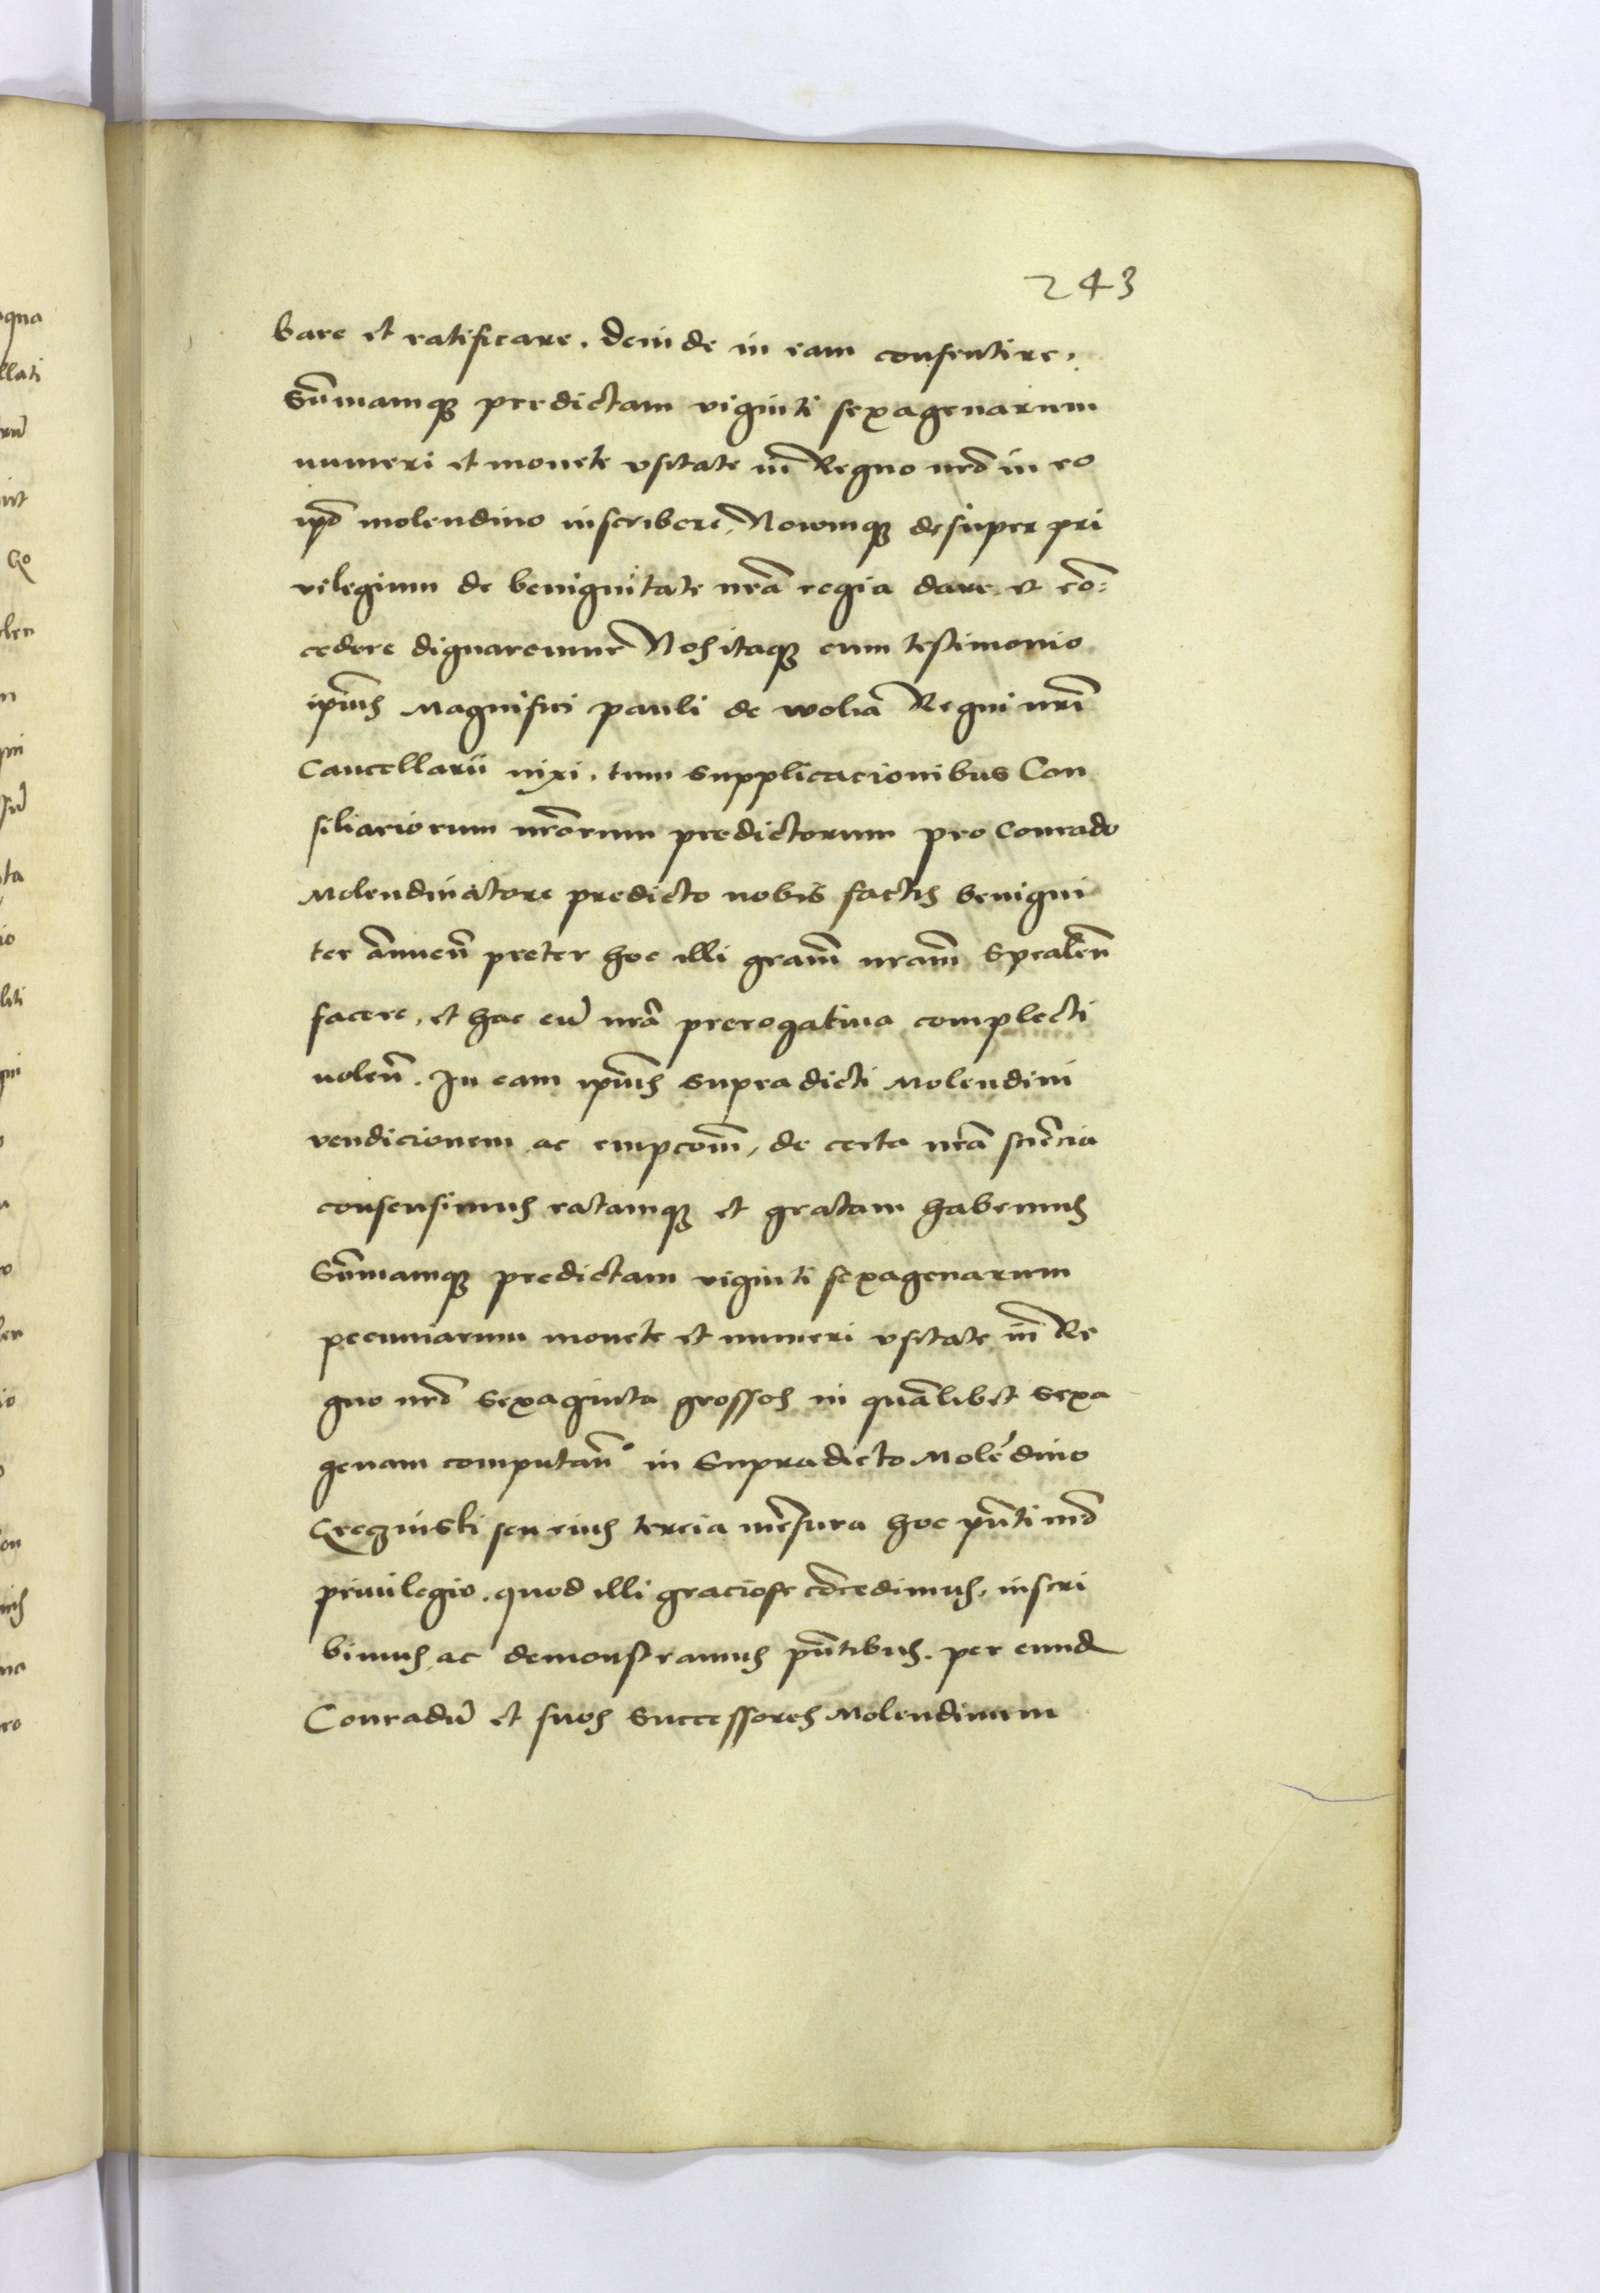 243
bare et ratificare. deinde in eam consentire.
Sūmamqꝫ predictam viginti sexagenarum
numeri et monete vsitate in Regno nrō in eo
ipō molendino inscribere, Nouumqꝫ desuper pri
vilegium de benignitate nrā regia dare et cō:
cedere dignaremur Nos itaqꝫ cum testimonio
ipiūs Magnifici pauli de wolia Regni nrī
Cancellarii nixi. tum supplicacionibus Con
siliariorum nrōrum predictorum pro Conrado
Molendinatore predicto nobis factis benigni
ter ānnueñ preter hoc illi grām̄ nrām̄ spcaleñ
facere, et hac eū nrā prerogatiua complecti
uoleñ. In eam ipiūs supradicti Molendini
vendicionem ac empcōm̄, de certa nrā sciēcia
consensimus ratamqꝫ et gratam habemus
Sūmamqꝫ predictam viginti sexagenarum
pecuniarum monete et numeri vsitate in Re
gno nrō sexaginta grossos in quālibet sexa
genam computañ in Supradicto Molēdino
seu eius tercia mēsura hoc pn̄ti nrō
priuilegio. quod illi graciose cōcedimus. inscri
bimus ac demonstramus pn̄tibus. per eund
Conradū et suos Successores Molendinum